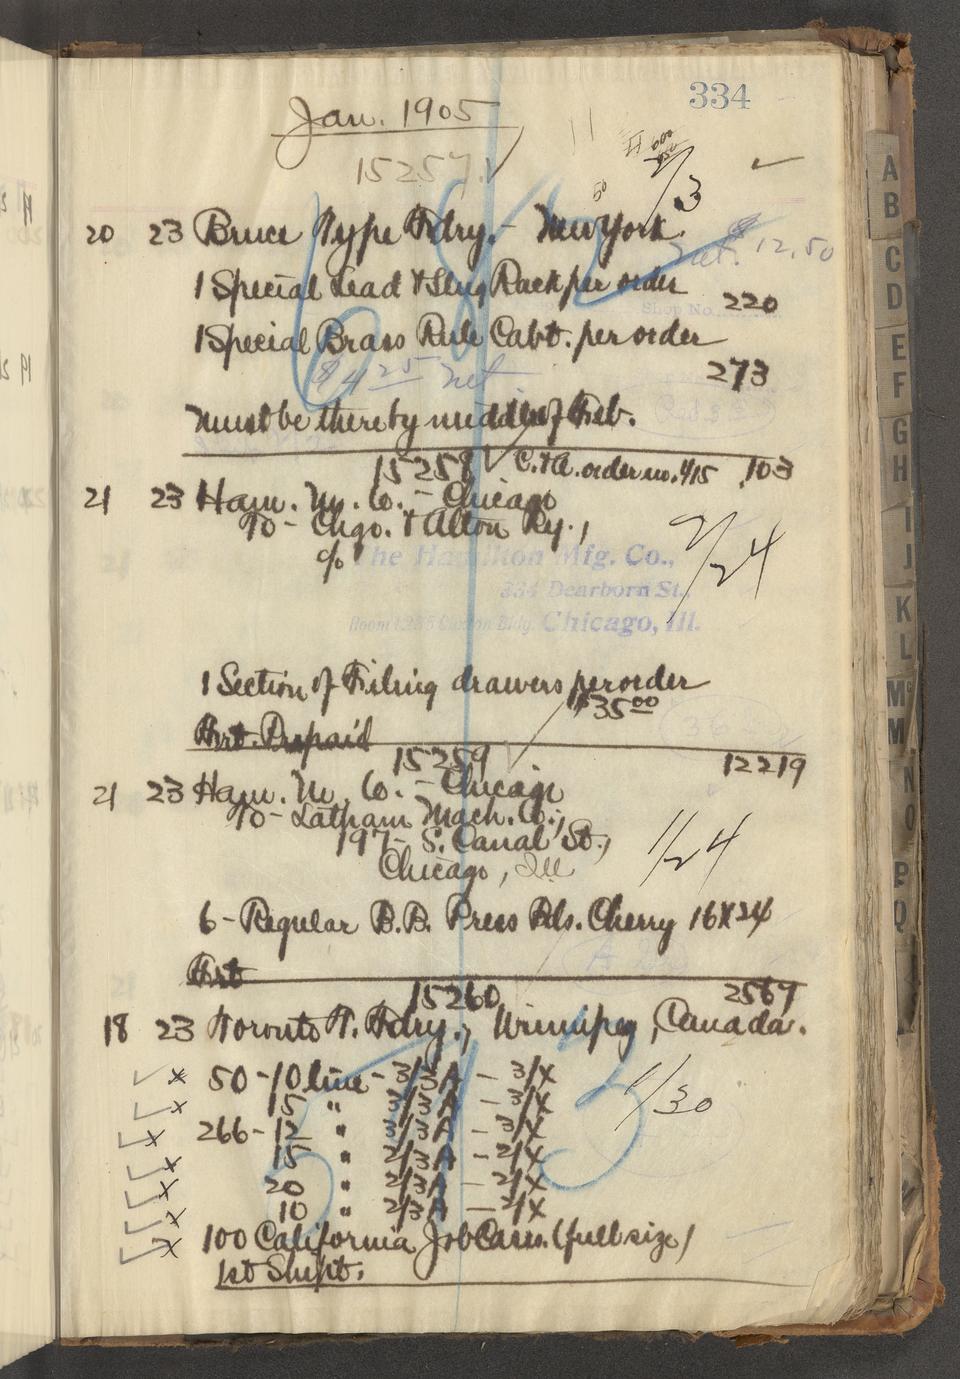 334
Jan. 1905
15257
2/3
20 23 Bruce Type Fdry. - New York.
net. $12.50
1 Special Lead & Slug Rack per order
220
Shop No.
1 Special Brass Rule Cabt. per order
$4 25 net
273
Must be there by middle of Feb.
15258 C. & A. order no. 415 103
21 23 Ham. M. Co. - Chicago
To - Chgo. & Alton Ry.,
c/o The Hamilton Mfg. Co.,
334 Dearborn St.,
Chicago, Ill.
2/24
1 Section of Filing drawers per order
$35 00
Frt. Prepaid
15259 12219
21 23 Ham. M. Co. - Chicago
To - Latham Mach. Co.,
197- S. Canal St.,
Chicago, Ill
1/24
6 - Regular B.B. Press Bds. Cherry 16X24
Frt
15260 2567
18 23 Toronto T. Fdry., Winnipeg, Canada.
x 50 - 10 line - 3/3A - 3/X
x 15 " 3/3A - 3/X
1/30
x 266 - 12 " 3/3A - 3/X
x 15 " 2/3A - 2/X
x 20 " 2/3A - 2/X
x 10 " 2/3A - 2/X
x 100 California Job Cases. (full size)
1st Shipt.
A
B
C
D
E
F
G
H
I
J
K
L
Mc
M
N
O
P
Q